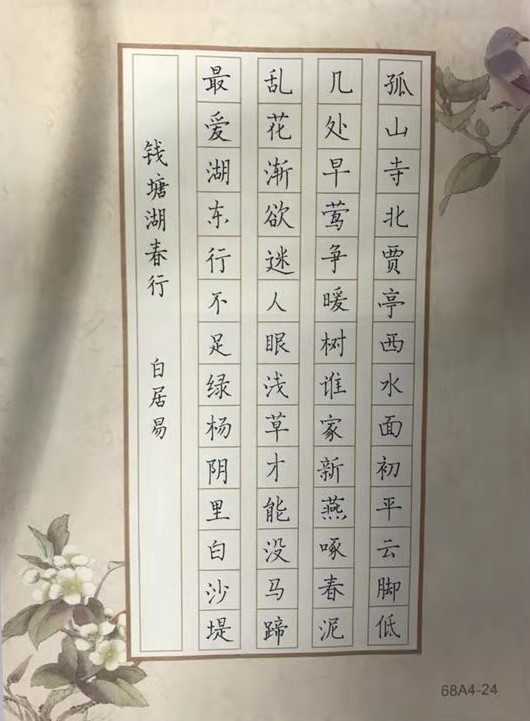 孤山寺北贾亭西水面初平云脚低
几处早莺争暖树谁家新燕啄春泥
乱花渐欲迷人眼浅草才能没马蹄
最爱湖东行不足绿杨阴里白沙堤
钱塘湖春行 白居易
68A4-24